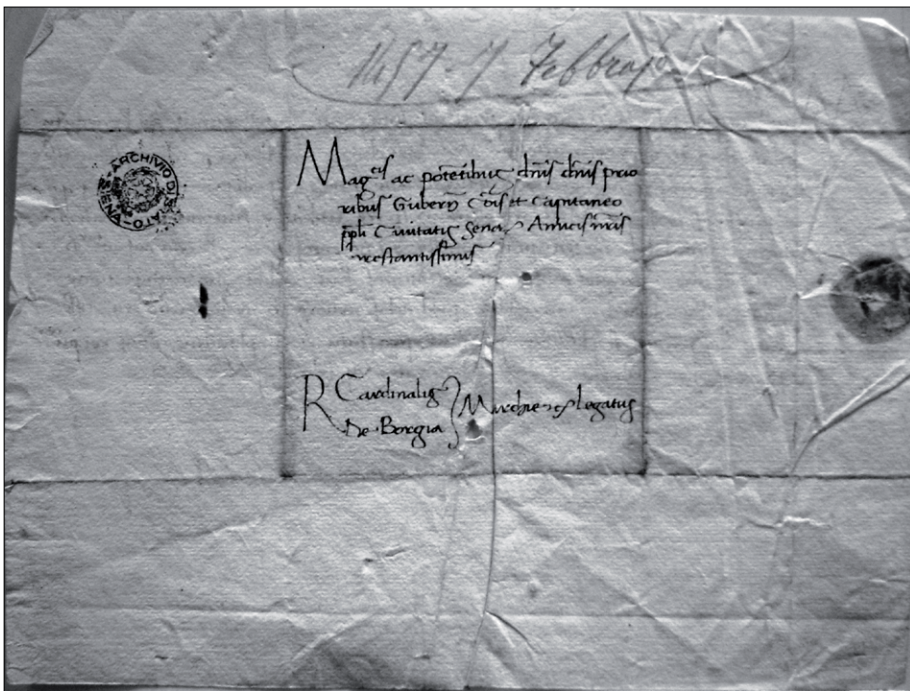 1457. 7 Febbrajo
ARCHIVIO DI STATO SIENA
Mag.cis ac potētibus dn̄is dn̄is prio
ribus Gubern̄ Cōis et Capitaneo
ppli Civitatis Senar Amicis n̄ris
prestantissimis
R Cardinalis
De Borgia
Marchie legatus